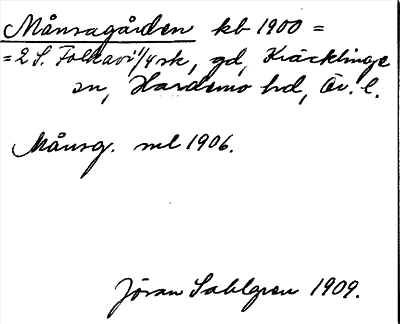 Månsagården kb 1900 =
= 2 S. Folkavi 1/4 sk, gd, Kräcklinge
sn, Hardemo hd, Ör. l.
Månsg. ml 1906.
Jöran Sahlgren 1909.